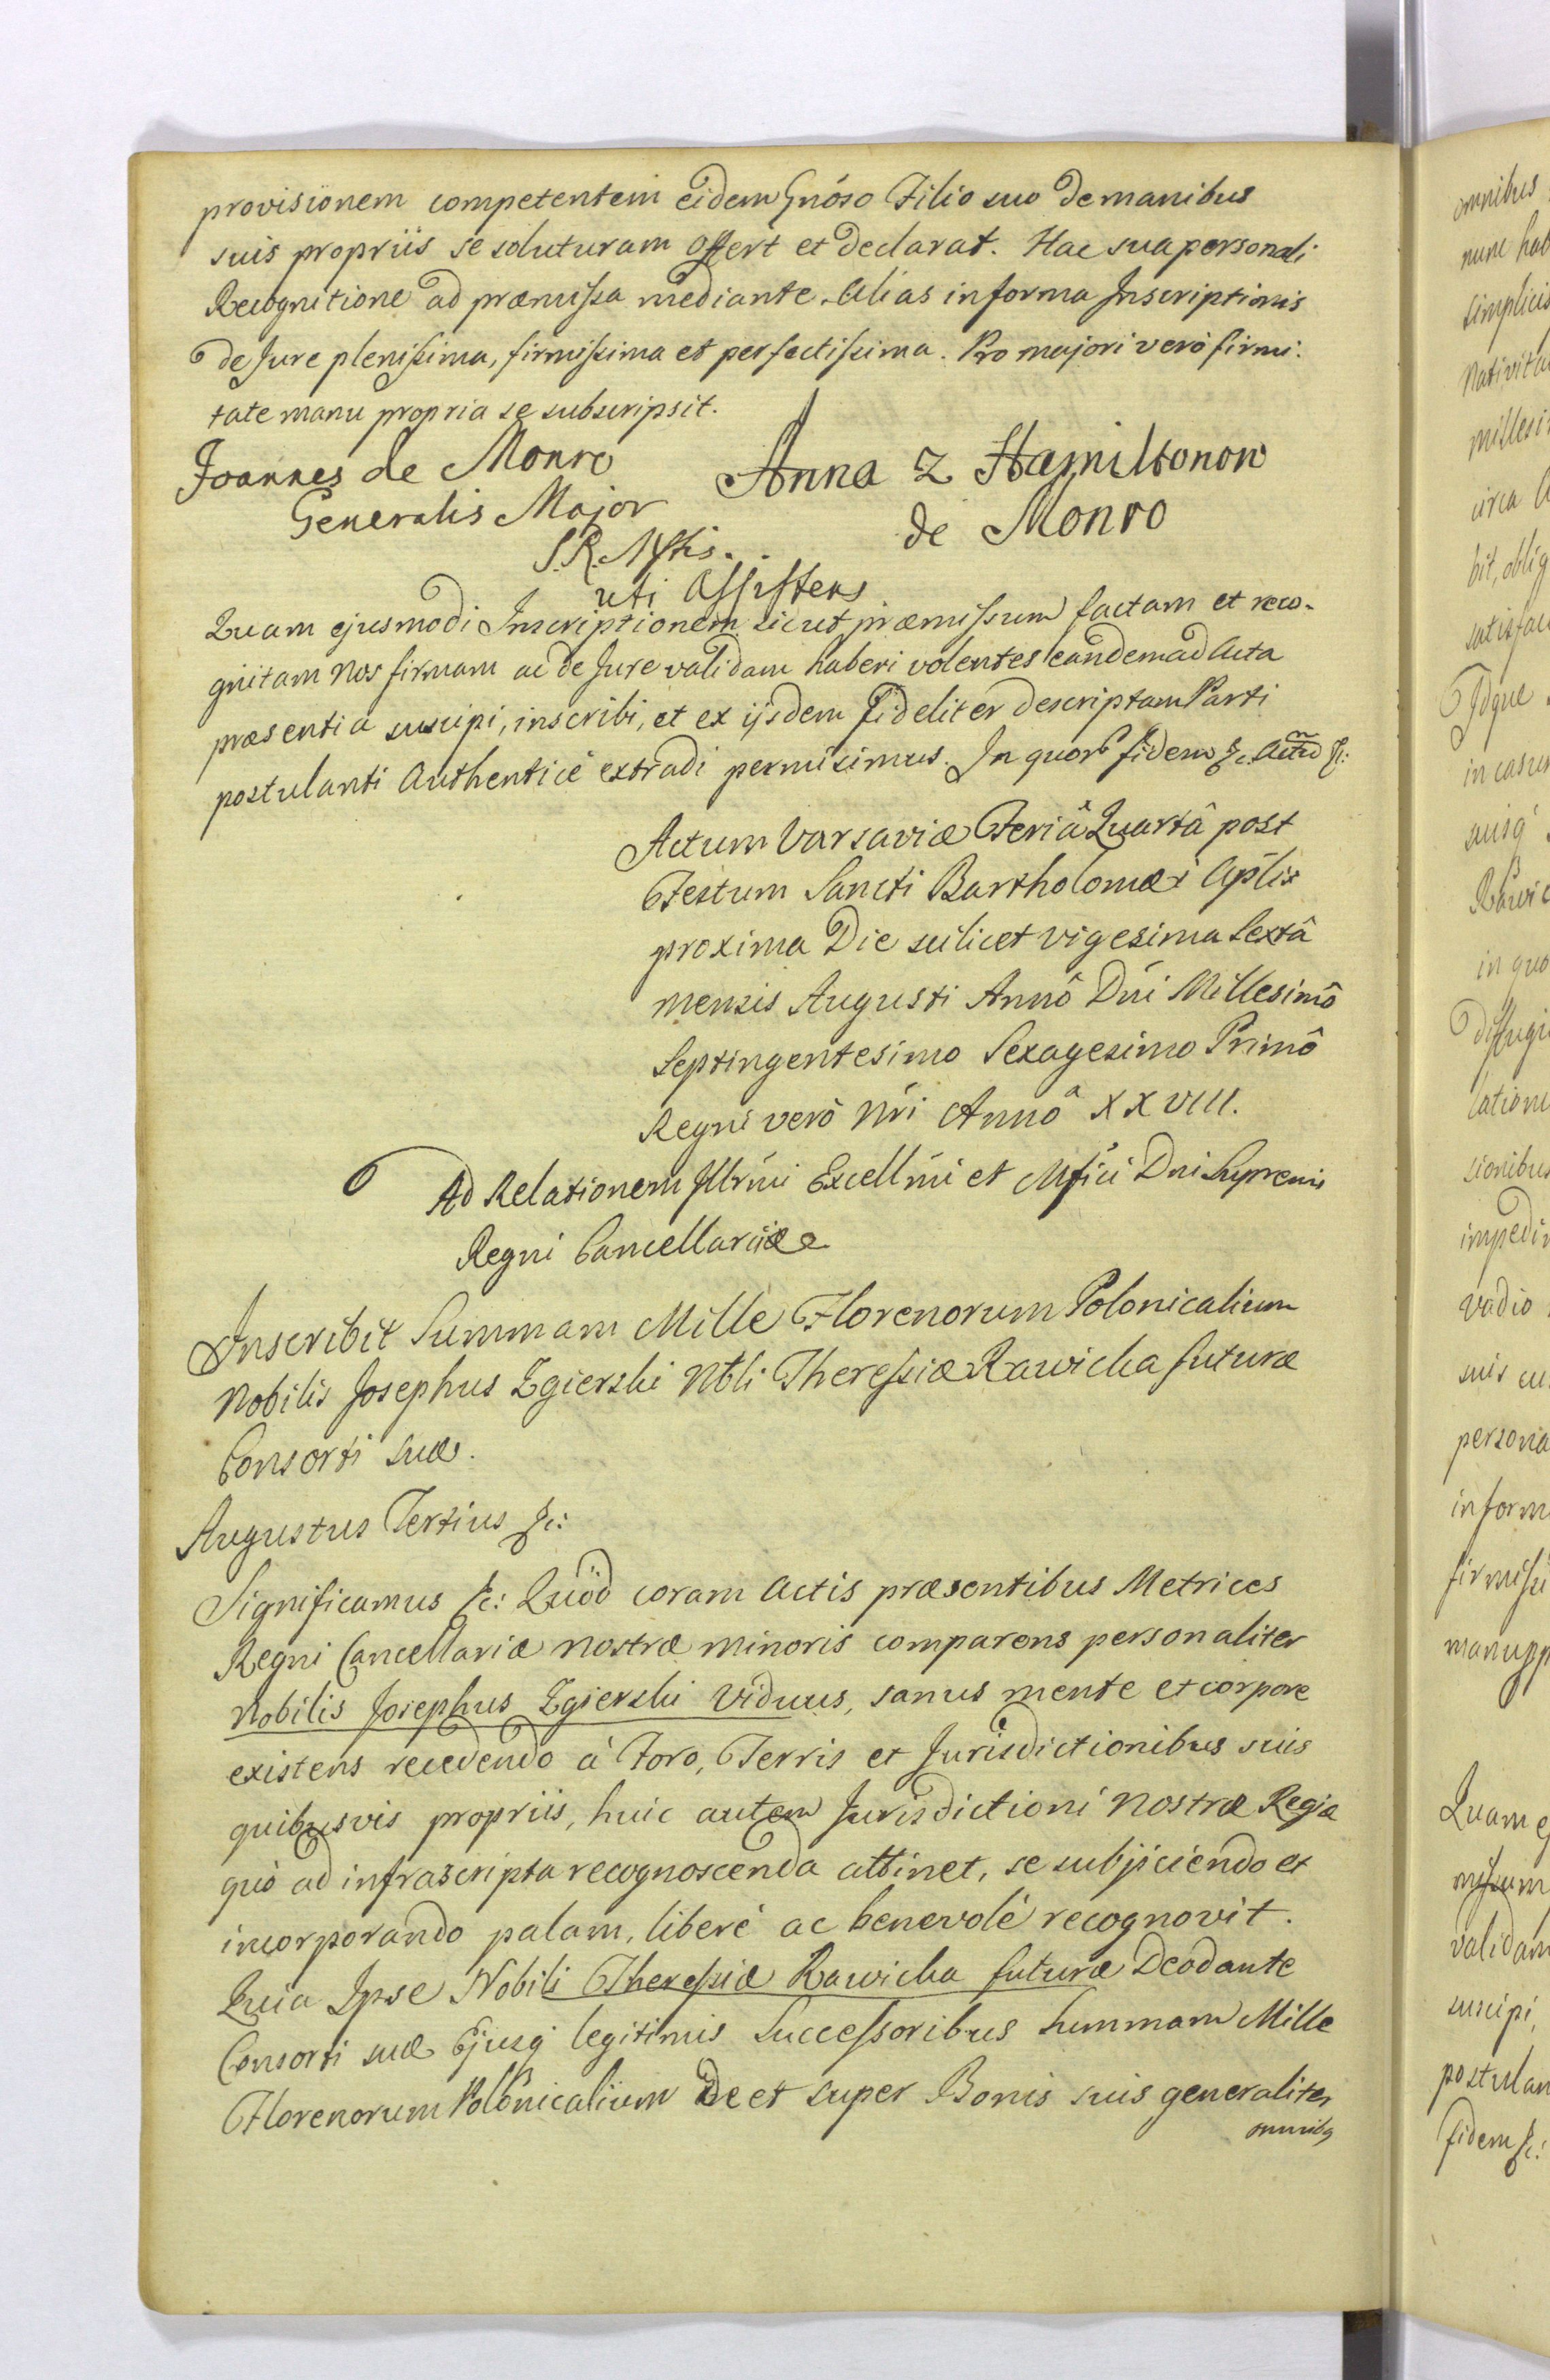 provisionem competentem eidem Gnõso Filio suo de manibus
suis propriis se soluturam offert et declarat. Hac sua personali
Recognitione ad præmissa mediante. Alias in forma Inscriptionis
de Jure plenissima, firmissima et perfectissima. Pro majori verò firmi:
tate manu propria se subscripsit.
Joannes de Monro
Generalis Major
S. R. Mttis.
uti Assistens
Anna z Hamiltonow
de Monro
Quam ejusmodi Inscriptionem sicut præmissum factam et reco-
gnitam Nos firmam ac de Jure validam haberi volentes eandem ad Acta
præsentia suscipi, inscribi, et ex ijsdem fideliter descriptam Parti
postulanti Authenticè extradi permisimus. In quor fidem &c. Actũ &c:
Actum Varsaviæ Feriâ Quartâ post
Festum Sancti Bartholomæi Aplis
proxima Die scilicet vigesima Sextâ
mensis Augusti Annô Dni Millesimô
Septingentesimo Sexagesimo Primô
Regni verò Nri Annô XXVIII.
Ad Relationem Illrmi Excellmi et Mfici Dni Supremi
Regni Cancellarii
Inscribit Summam Mille Florenorum Polonicalium
Nobilis Josephus Zgierski Nbli Theressiæ Rawicka futuræ
Consorti suæ.
Augustus Tertius &c:
Significamus &c: Quòd coram Actis præsentibus Metrices
Regni Cancellariæ Nostræ minoris comparens personaliter
Nobilis Josephus Zgierski Viduus, sanus mente et corpore
existens recedendo à Foro, Terris et Jurisdictionibus suis
quibusvis propriis, huic autem Jurisdictioni Nostræ Regiæ
quò ad infrascripta recognoscenda attinet, se subjiciendo et
incorporando palam, liberè ac benevolè recognovit.
Quia Ipse Nobili Theressiæ Rawicka futuræ Deodante
Consorti suæ Ejusq legitimis Successoribus Summam Mille
Florenorum Polonicalium de et super Bonis suis generaliter
omnibq
omnibus
nunc hab
simplicis
Nativita
millesi
circa
bit, oblig
satisfac
Idque
in casu
ausq
Rawic
in quo
diffugi
catione
sionibus
impedi
vadio
suis cu
persona
in form
firmissi
manupp
Quam ej
missum
validam
suscipi,
postulan
fidem &c: